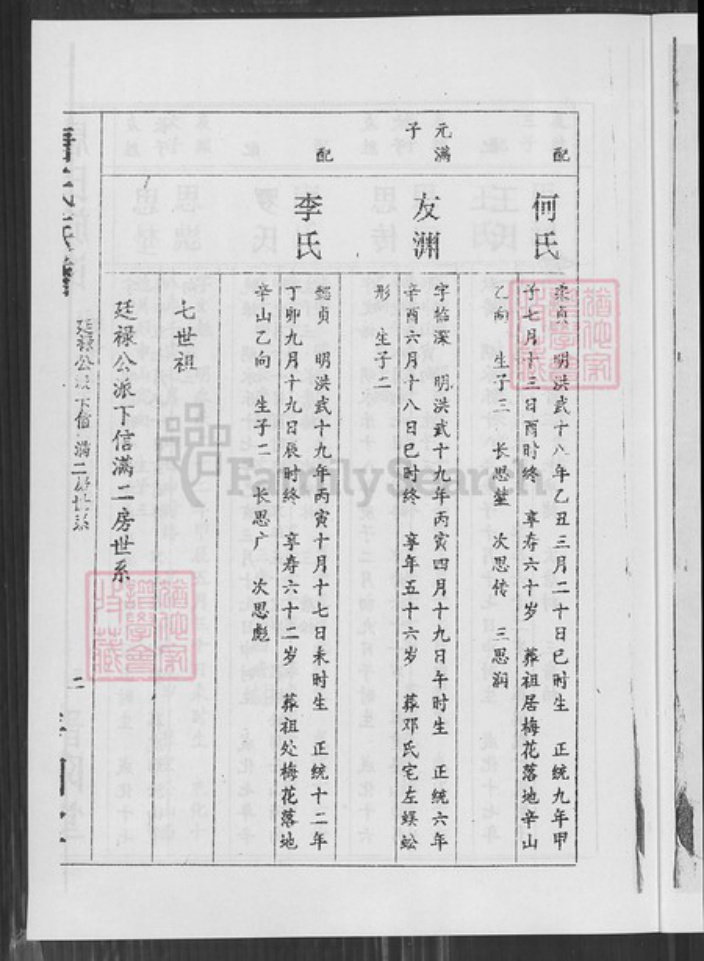 配
何氏
柔贞 明洪武十八年乙丑三月二十日巳时生 正统九年甲
子七月十三日酉时终 享寿六十岁 葬祖居梅花落地辛山
乙向 生子三 长思堂 次思传 三思润
元满
子
友渊
字临深 明洪武十九年丙寅四月十九日午时生 正统六年
辛酉六月十八日巳时终 享年五十六岁 葬邓氏宅左蜈蚣
形 生子二
配
李氏
懿贞 明洪武十九年丙寅十月十七日未时生 正统十二年
丁卯九月十九日辰时终 享寿六十二岁 葬祖处梅花落地
辛山乙向 生子二 长思广 次思彪
七世祖
廷禄公派下信满二房世系
廷禄公派下信满二房世系
二
FamilySearch